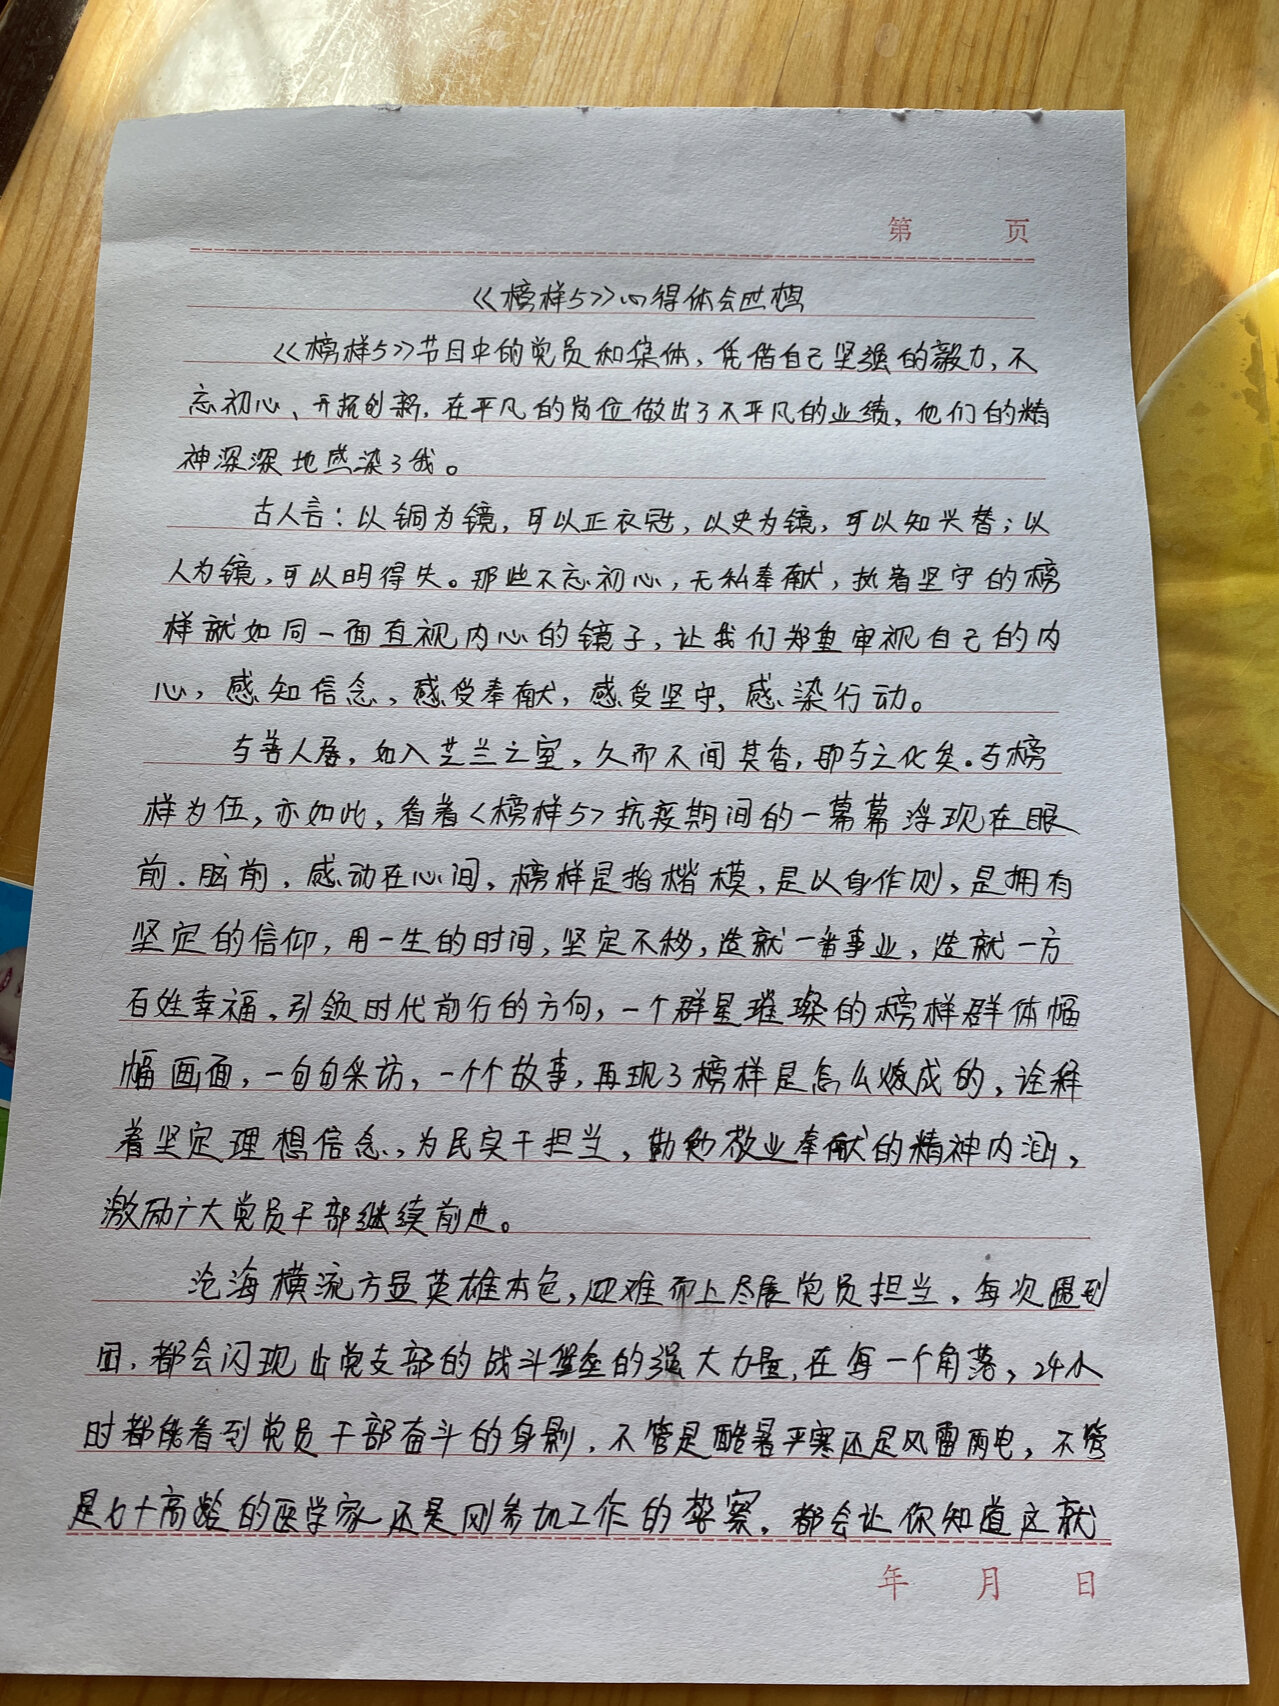 第 页
《榜样5》心得体会感想
《榜样5》节目中的党员和集体，凭借自己坚强的毅力，不
忘初心、开拓创新，在平凡的岗位做出了不平凡的业绩，他们的精
神深深地感染了我。
古人言：以铜为镜，可以正衣冠，以史为镜，可以知兴替；以
人为镜，可以明得失。那些不忘初心，无私奉献，执着坚守的榜
样就如同一面直视内心的镜子，让我们郑重审视自己的内
心，感知信念，感受奉献，感受坚守，感染行动。
与善人居，如入芝兰之室，久而不闻其香，即与之化矣。与榜
样为伍，亦如此，看着<榜样5>抗疫期间的一幕幕浮现在眼
前．脑前，感动在心间，榜样是指楷模，是以身作则，是拥有
坚定的信仰，用一生的时间，坚定不移，造就一番事业，造就一方
百姓幸福，引领时代前行的方向，一个群星璀璨的榜样群体幅
幅画面，一句句采访，一个个故事，再现了榜样是怎么炼成的，诠释
着坚定理想信念，为民实干担当，勤勉敬业奉献的精神内涵，
激励广大党员干部继续前进。
沧海横流方显英雄本色，迎难而上尽展党员担当，每次遇到
困，都会闪现出党支部的战斗堡垒的强大力量，在每一个角落，24小
时都能看到党员干部奋斗的身影，不管是酷暑严寒还是风雷雨电，不管
是七十高龄的医学家还是刚参加工作的警察，都会让你知道这就
年 月 日